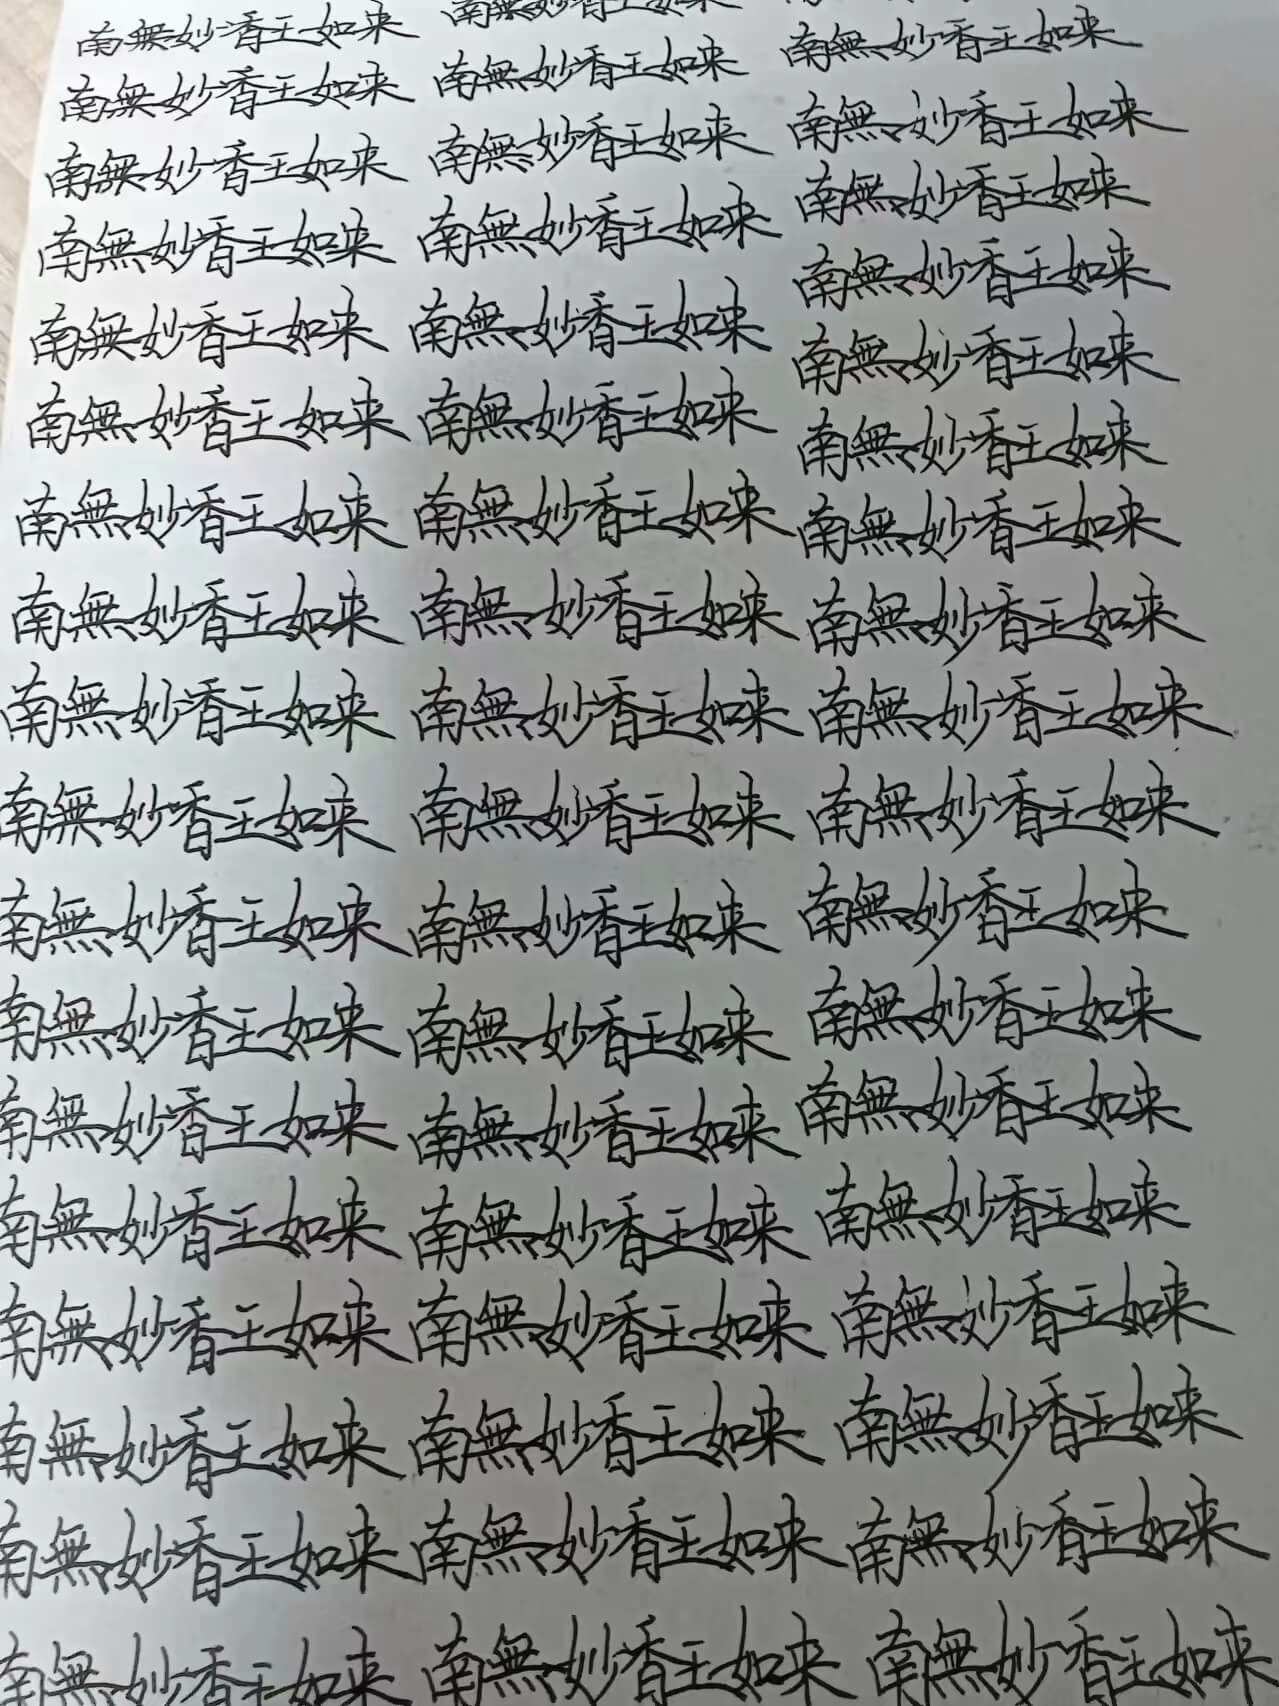 南無妙香王如来 南無妙香王如来 南無妙香王如来
南無妙香王如来 南無妙香王如来 南無妙香王如来
南無妙香王如来 南無妙香王如来 南無妙香王如来
南無妙香王如来 南無妙香王如来 南無妙香王如来
南無妙香王如来 南無妙香王如来 南無妙香王如来
南無妙香王如来 南無妙香王如来 南無妙香王如来
南無妙香王如来 南無妙香王如来 南無妙香王如来
南無妙香王如来 南無妙香王如来 南無妙香王如来
南無妙香王如来 南無妙香王如来 南無妙香王如来
南無妙香王如来 南無妙香王如来 南無妙香王如来
南無妙香王如来 南無妙香王如来 南無妙香王如来
南無妙香王如来 南無妙香王如来 南無妙香王如来
南無妙香王如来 南無妙香王如来 南無妙香王如来
南無妙香王如来 南無妙香王如来 南無妙香王如来
南無妙香王如来 南無妙香王如来 南無妙香王如来
南無妙香王如来 南無妙香王如来 南無妙香王如来
南無妙香王如来 南無妙香王如来 南無妙香王如来
南無妙香王如来 南無妙香王如来 南無妙香王如来